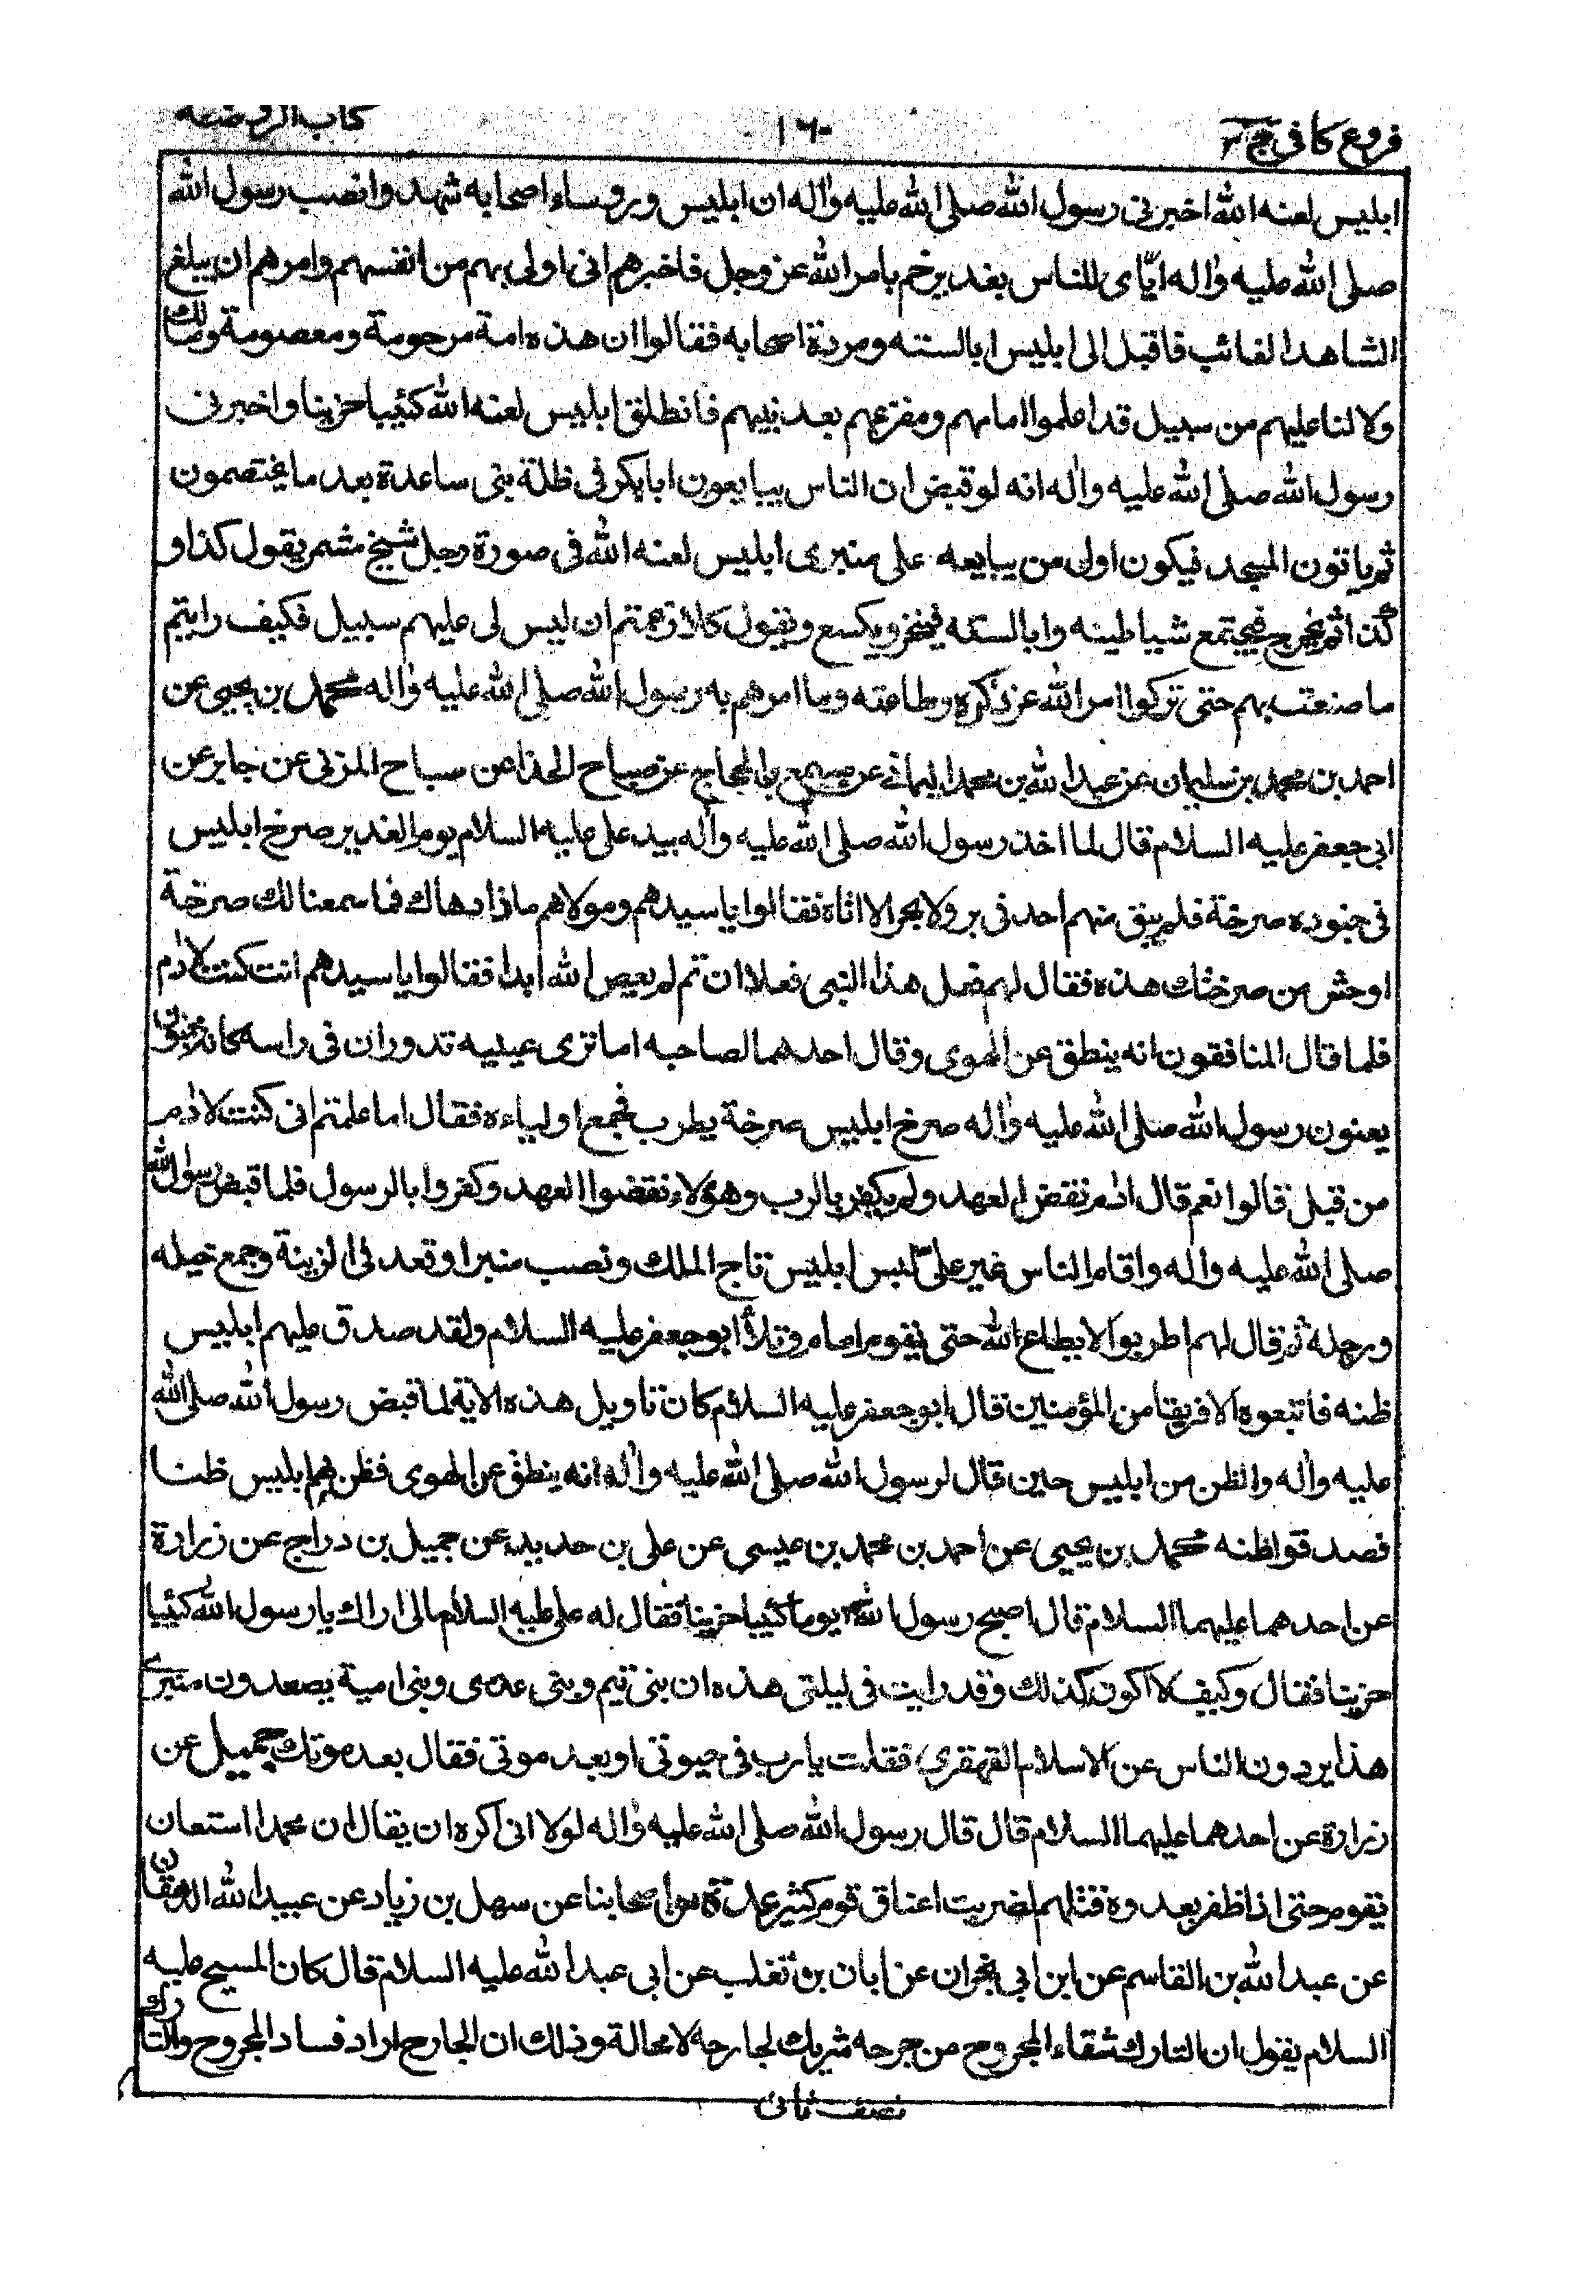 فروع كافى ج ٣ ١٦٠ كتاب الروضة
ابليس لعنه الله اخبرنى رسول الله صلى الله عليه واله ان ابليس وروساء اصحابه شهد وانصب رسول الله
صلى الله عليه واله اياى للناس بغدير خم بامر الله عز وجل فاخبرهم انى اولى بهم من انفسهم وامرهم ان يبلغ
الشاهد الغائب فاقبل الى ابليس ابالسته ومردة اصحابه فقالوا ان هذه امة مرحومة ومعصومة ومالك
ولا لنا عليهم من سبيل قد اعلموا امامهم ومفزعهم بعد نبيهم فانطلق ابليس لعنه الله كئيبا حزينا واخبرنى
رسول الله صلى الله عليه واله انه لو قبض ان الناس يبايعون ابابكر فى ظلة بنى ساعدة بعد ما يختصمون
ثم ياتون المسجد فيكون اول من يبايعه على منبرى ابليس لعنه الله فى صورة رجل شيخ مشمر يقول كذا و
كذا ثم يخرج فيجتمع شياطينه وابالسته فينخر ويكسع ويقول كلا زعمتم ان ليس لى عليهم سبيل فكيف رايتم
ما صنعت بهم حتى تركوا امر الله عز ذكره وطاعته وما امرهم به رسول الله صلى الله عليه واله محمد بن يحيى عن
احمد بن محمد بن سليمان عن عبد الله بن محمد اليمانى عن مسمع بن الحجاج عن صباح الحذا عن صباح المزنى عن جابر عن
ابى جعفر عليه السلام قال لما اخذ رسول الله صلى الله عليه واله بيد على عليه السلام يوم الغدير صرخ ابليس
فى جنوده صرخة فلم يبق منهم احد فى بر ولا بحر الا اتاه فقالوا يا سيدهم ومولاهم ماذا دهاك فما سمعنا لك صرخة
اوحش من صرختك هذه فقال لهم فعل هذا النبى فعلا ان تم لم يعص الله ابدا فقالوا يا سيدهم انت كنت لادم
فلما قال المنافقون انه ينطق عن الهوى وقال احدهما لصاحبه اما ترى عينيه تدوران فى راسه كانه مجنون
يعنون رسول الله صلى الله عليه واله صرخ ابليس صرخة يطرب فجمع اولياءه فقال اما علمتم انى كنت لادم
من قبل قالوا نعم قال ادم نقض العهد ولم يكفر بالرب وهؤلاء نقضوا العهد وكفروا بالرسول فلما قبض رسول الله
صلى الله عليه واله واقام الناس غير على لبس ابليس تاج الملك ونصب منبرا وقعد فى الزينة وجمع خيله
ورجله ثم قال لهم اطربوا لا يطاع الله حتى يقوم امام وتلا ابو جعفر عليه السلام ولقد صدق عليهم ابليس
ظنه فاتبعوه الا فريقا من المؤمنين قال ابو جعفر عليه السلام كان تاويل هذه الاية لما قبض رسول الله صلى الله
عليه واله والظن من ابليس حين قال لرسول الله صلى الله عليه واله انه ينطق عن الهوى فظن بهم ابليس ظنا
فصدقوا ظنه محمد بن يحيى عن احمد بن محمد بن عيسى عن على بن حديد عن جميل بن دراج عن زرارة
عن احدهما عليهما السلام قال اصبح رسول الله يوما كئيبا حزينا فقال له على عليه السلام مالى اراك يا رسول الله كئيبا
حزينا فقال وكيف لا اكون كذلك وقد رايت فى ليلتى هذه ان بنى تيم وبنى عدى وبنى امية يصعدون منبرى
هذا يردون الناس عن الاسلام القهقرى فقلت يا رب فى حيوتى او بعد موتى فقال بعد موتك جميل عن
زرارة عن احدهما عليهما السلام قال قال رسول الله صلى الله عليه واله لولا انى اكره ان يقال ان محمدا استعان
بقوم حتى اذا ظفر بعدوه قتلهم لضربت اعناق قوم كثير عدة من اصحابنا عن سهل بن زياد عن عبيد الله الدهقان
عن عبد الله بن القاسم عن ابن ابى نجران عن ابان بن تغلب عن ابى عبد الله عليه السلام قال كان المسيح عليه
السلام يقول ان التارك شفاء المجروح من جرحه شريك لجارحه لا محالة وذلك ان الجارح اراد فساد المجروح والتارك
نصف ثانى